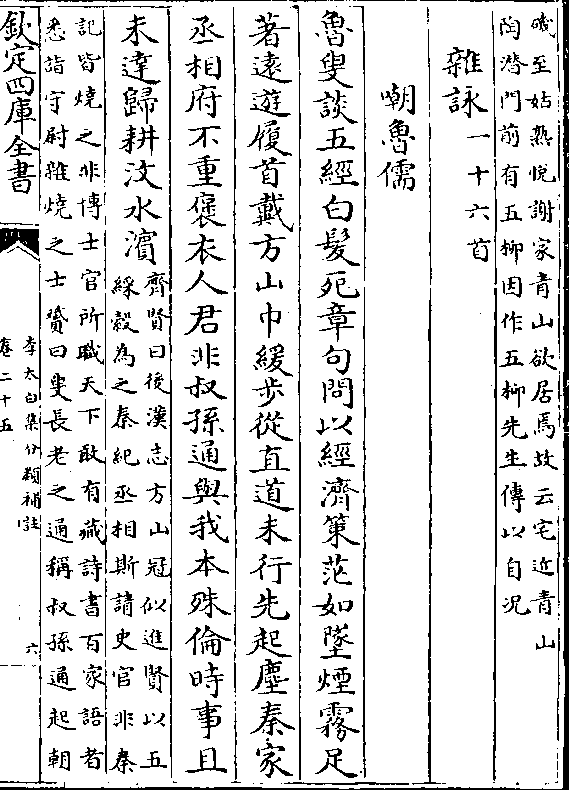 峨至姑熟悅謝家青山欲居焉故云宅近青山
陶潛門前有五柳因作五柳先生傳以自况
雜詠一十六首
嘲魯儒
魯叟談五經白髮死章句問以經濟策茫如墜煙霧足
著遠遊履首戴方山巾緩步從直道未行先起塵秦家
丞相府不重褒衣人君非叔孫通與我本殊倫時事且
未達歸耕汶水濱
齊賢曰後漢志方山冠似進賢以五
綵縠為之秦紀丞相斯請史官非秦
記皆燒之非博士官所職天下敢有藏詩書百家語者
悉詣守尉雜燒之士贇曰叟長老之通稱叔孫通起朝
欽定四庫全書
李太白集分類補註
卷二十五
六